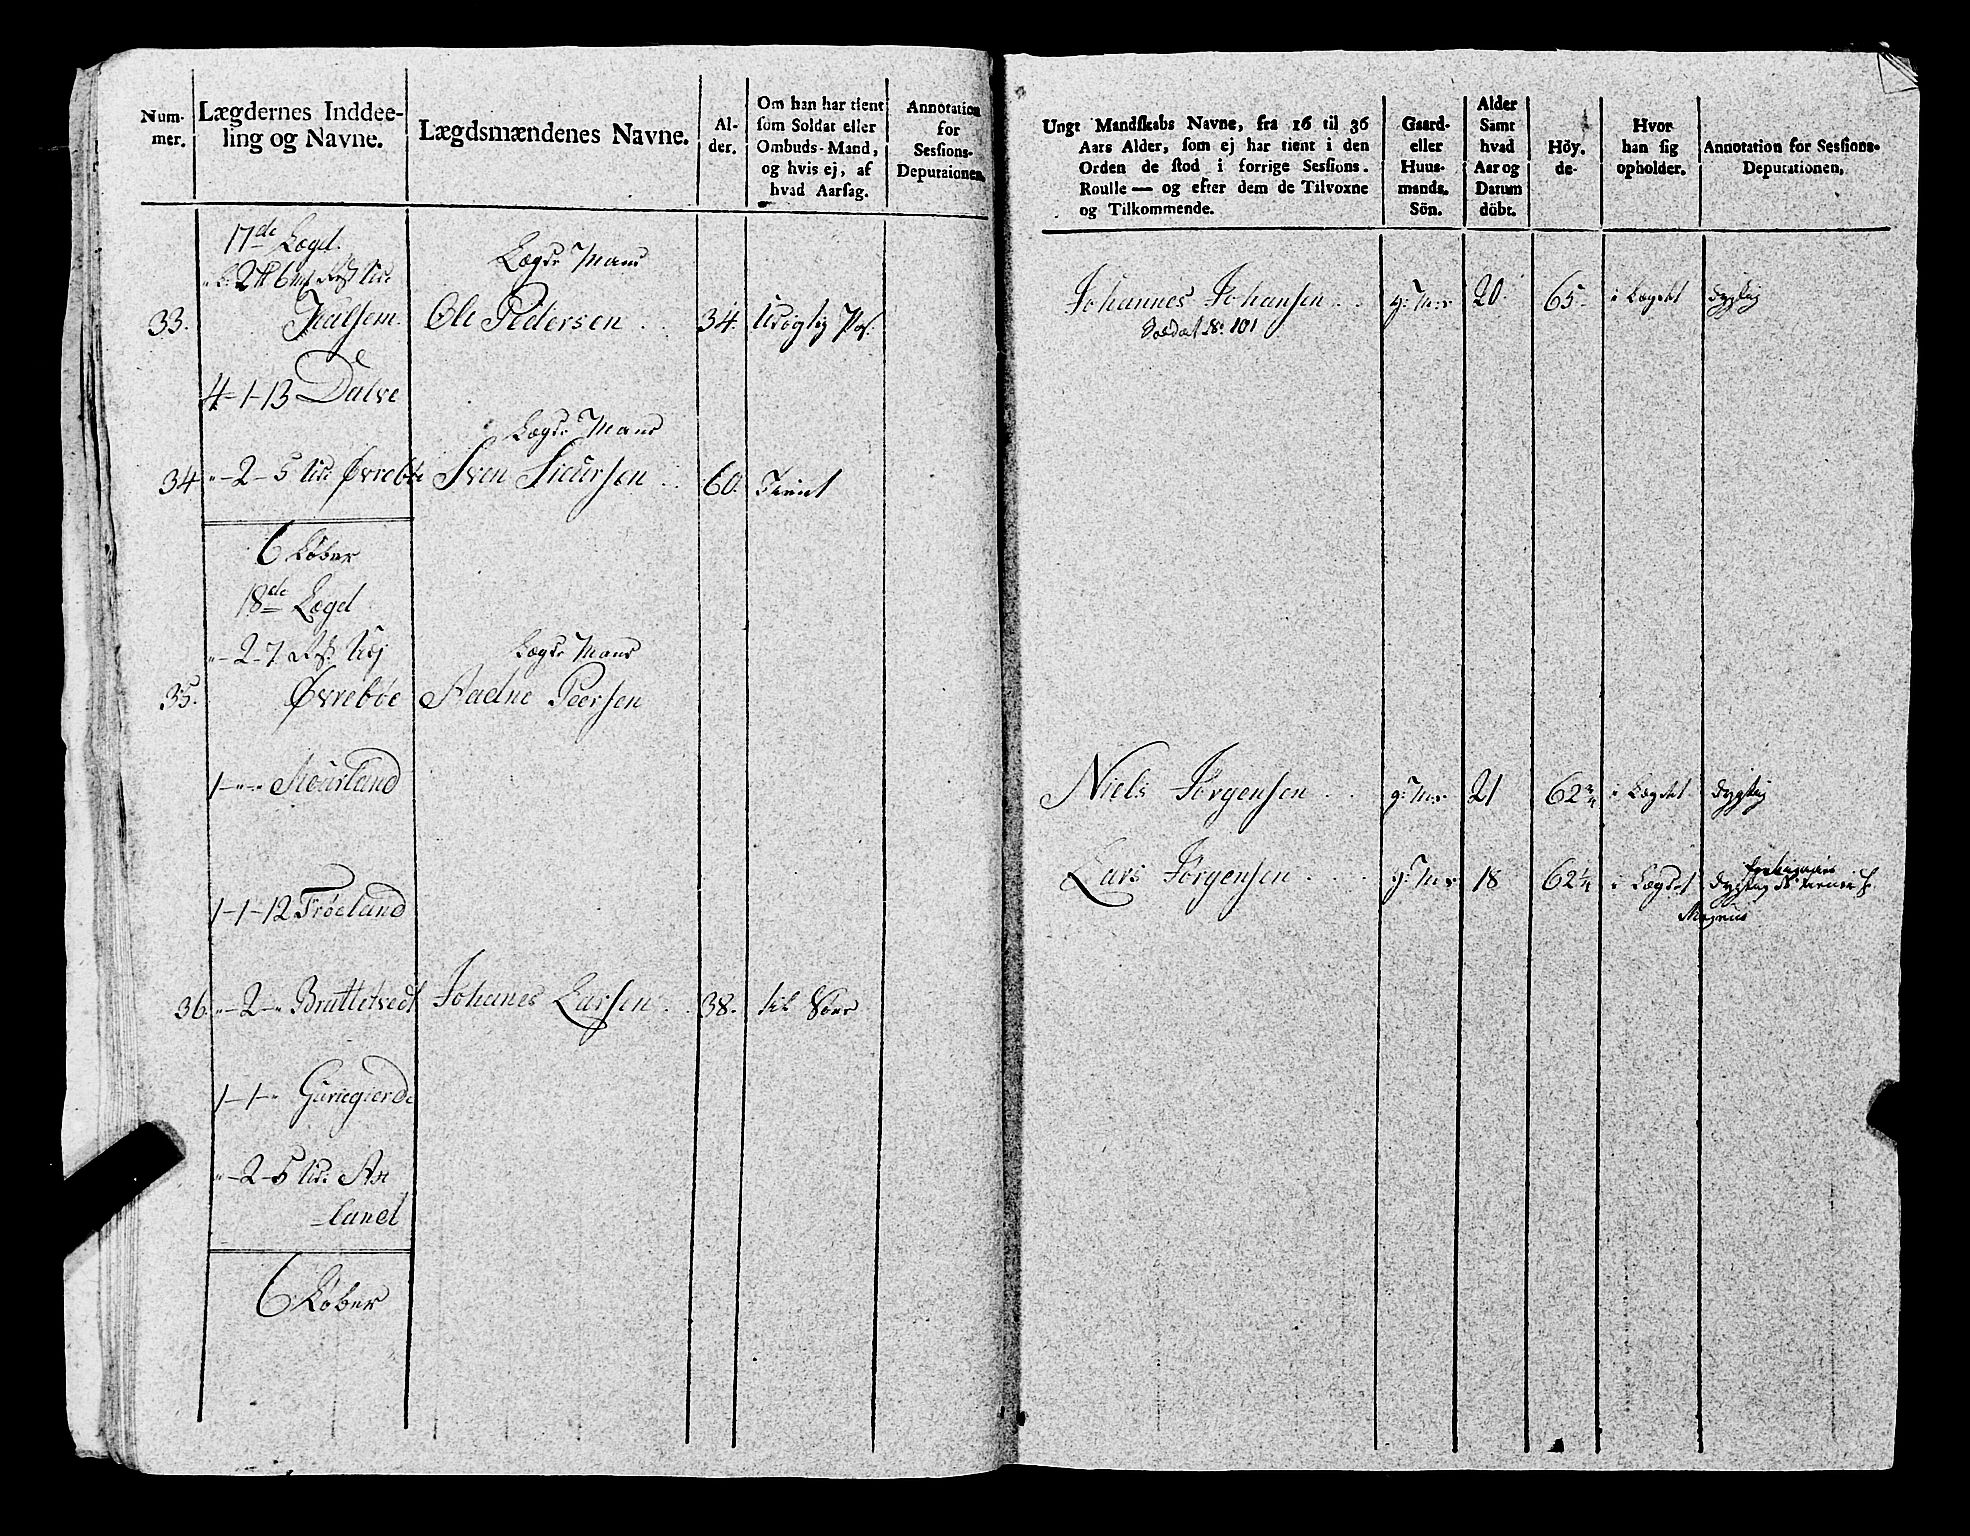 Num-
mer.
Lægdernes Inddee-
ling og Navne.
Lægdsmændenes Navne.
Al-
der.
Om han har tient
som Soldat eller
Ombuds-Mand,
og hvis ej, af
hvad Aarsag.
Annotation
for
Sessions-
Deputaionen.
17de Lægd.
Lægds Mand
33. Ole Pedersen 34.
4-1-13 Dalve
Lægds Mand
34 2-5 Øvrebøe Sven Siversen 60. Tient
6 Køber
18de Lægd
2-7
Lægds Mand
35. Øvrebøe Aadne Peersen
1-"-" Mourland
1-1-12 Frøeland
36. "-2-" Brattetvedt Johanes Larsen 38.
1-1-" Guriegierde
"-2-5 Ar
land
6 Køber
Ungt Mandskabs Navne, fra 16 til 36
Aars Alder, som ej har tient i den
Orden de stod i forrige Sessions.
Roulle — og efter dem de Tilvoxne
og Tilkommende.
Gaard-
eller
Huus-
mands.
Sön.
Alder
Samt
hvad
Aar og
Datum
döbt.
Höy.
de-
Hvor
han sig
opholder.
Annotation for Sessions-
Deputationen.
Johannes Johansen 20. 65. i Lægdet dygtig
Soldat No. 101
Niels Jørgensen 21 62 3/4 i Lægdet dygtig
Lars Jørgensen 18 62 1/4 i Lægdet dygtig